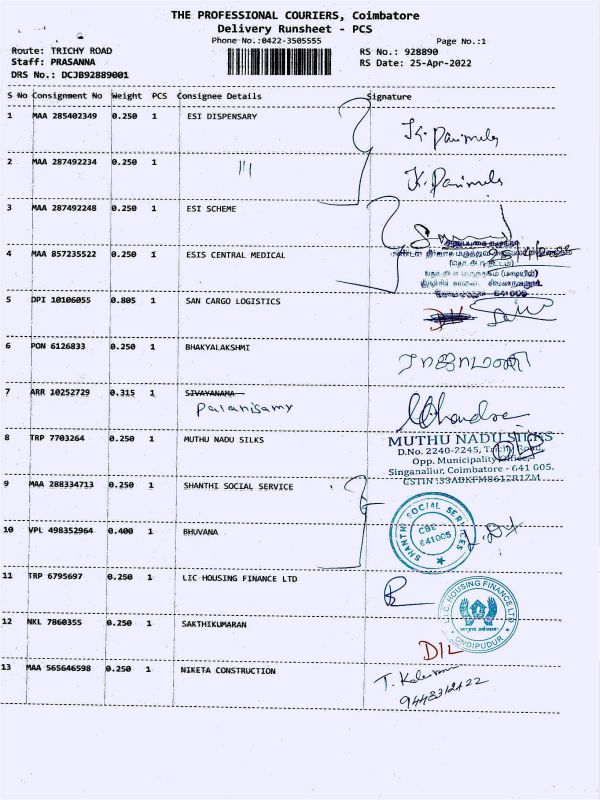 THE PROFESSIONAL COURIERS, Coimbatore
Delivery Runsheet - PCS
Phone No.:0422-3505555
Page No.:1
Route: TRICHY ROAD
RS No.: 928890
Staff: PRASANNA
RS Date: 25-Apr-2022
DRS No.: DCJB92889001
S No Consignment No Weight PCS Consignee Details Signature
1 MAA 285402349 0.250 1 ESI DISPENSARY
2 MAA 287492234 0.250 1
3 MAA 287492248 0.250 1 ESI SCHEME
4 MAA 857235522 0.250 1 ESIS CENTRAL MEDICAL
641005
5 DPI 10106055 0.805 1 SAN CARGO LOGISTICS
6 PON 6126833 0.250 1 BHAKYALAKSHMI
ராஜாமணி
7 ARR 10252729 0.315 1 SIVAYANAMA
Palanisamy
8 TRP 7703264 0.250 1 MUTHU NADU SILKS
MUTHU NADU SILKS
D.No. 2240-2245, Trichy Road,
Opp. Municipality Office,
Singanallur, Coimbatore - 641 005.
GSTIN :33ABKFM8612R1ZM
9 MAA 288334713 0.250 1 SHANTHI SOCIAL SERVICE
SHANTHI SOCIAL SERVICES
CBE
641005
10 VPL 498352964 0.400 1 BHUVANA
11 TRP 6795697 0.250 1 LIC HOUSING FINANCE LTD
LIC HOUSING FINANCE LTD
ONDIPUDUR
12 NKL 7860355 0.250 1 SAKTHIKUMARAN
DIL
13 MAA 565646598 0.250 1 NIKETA CONSTRUCTION